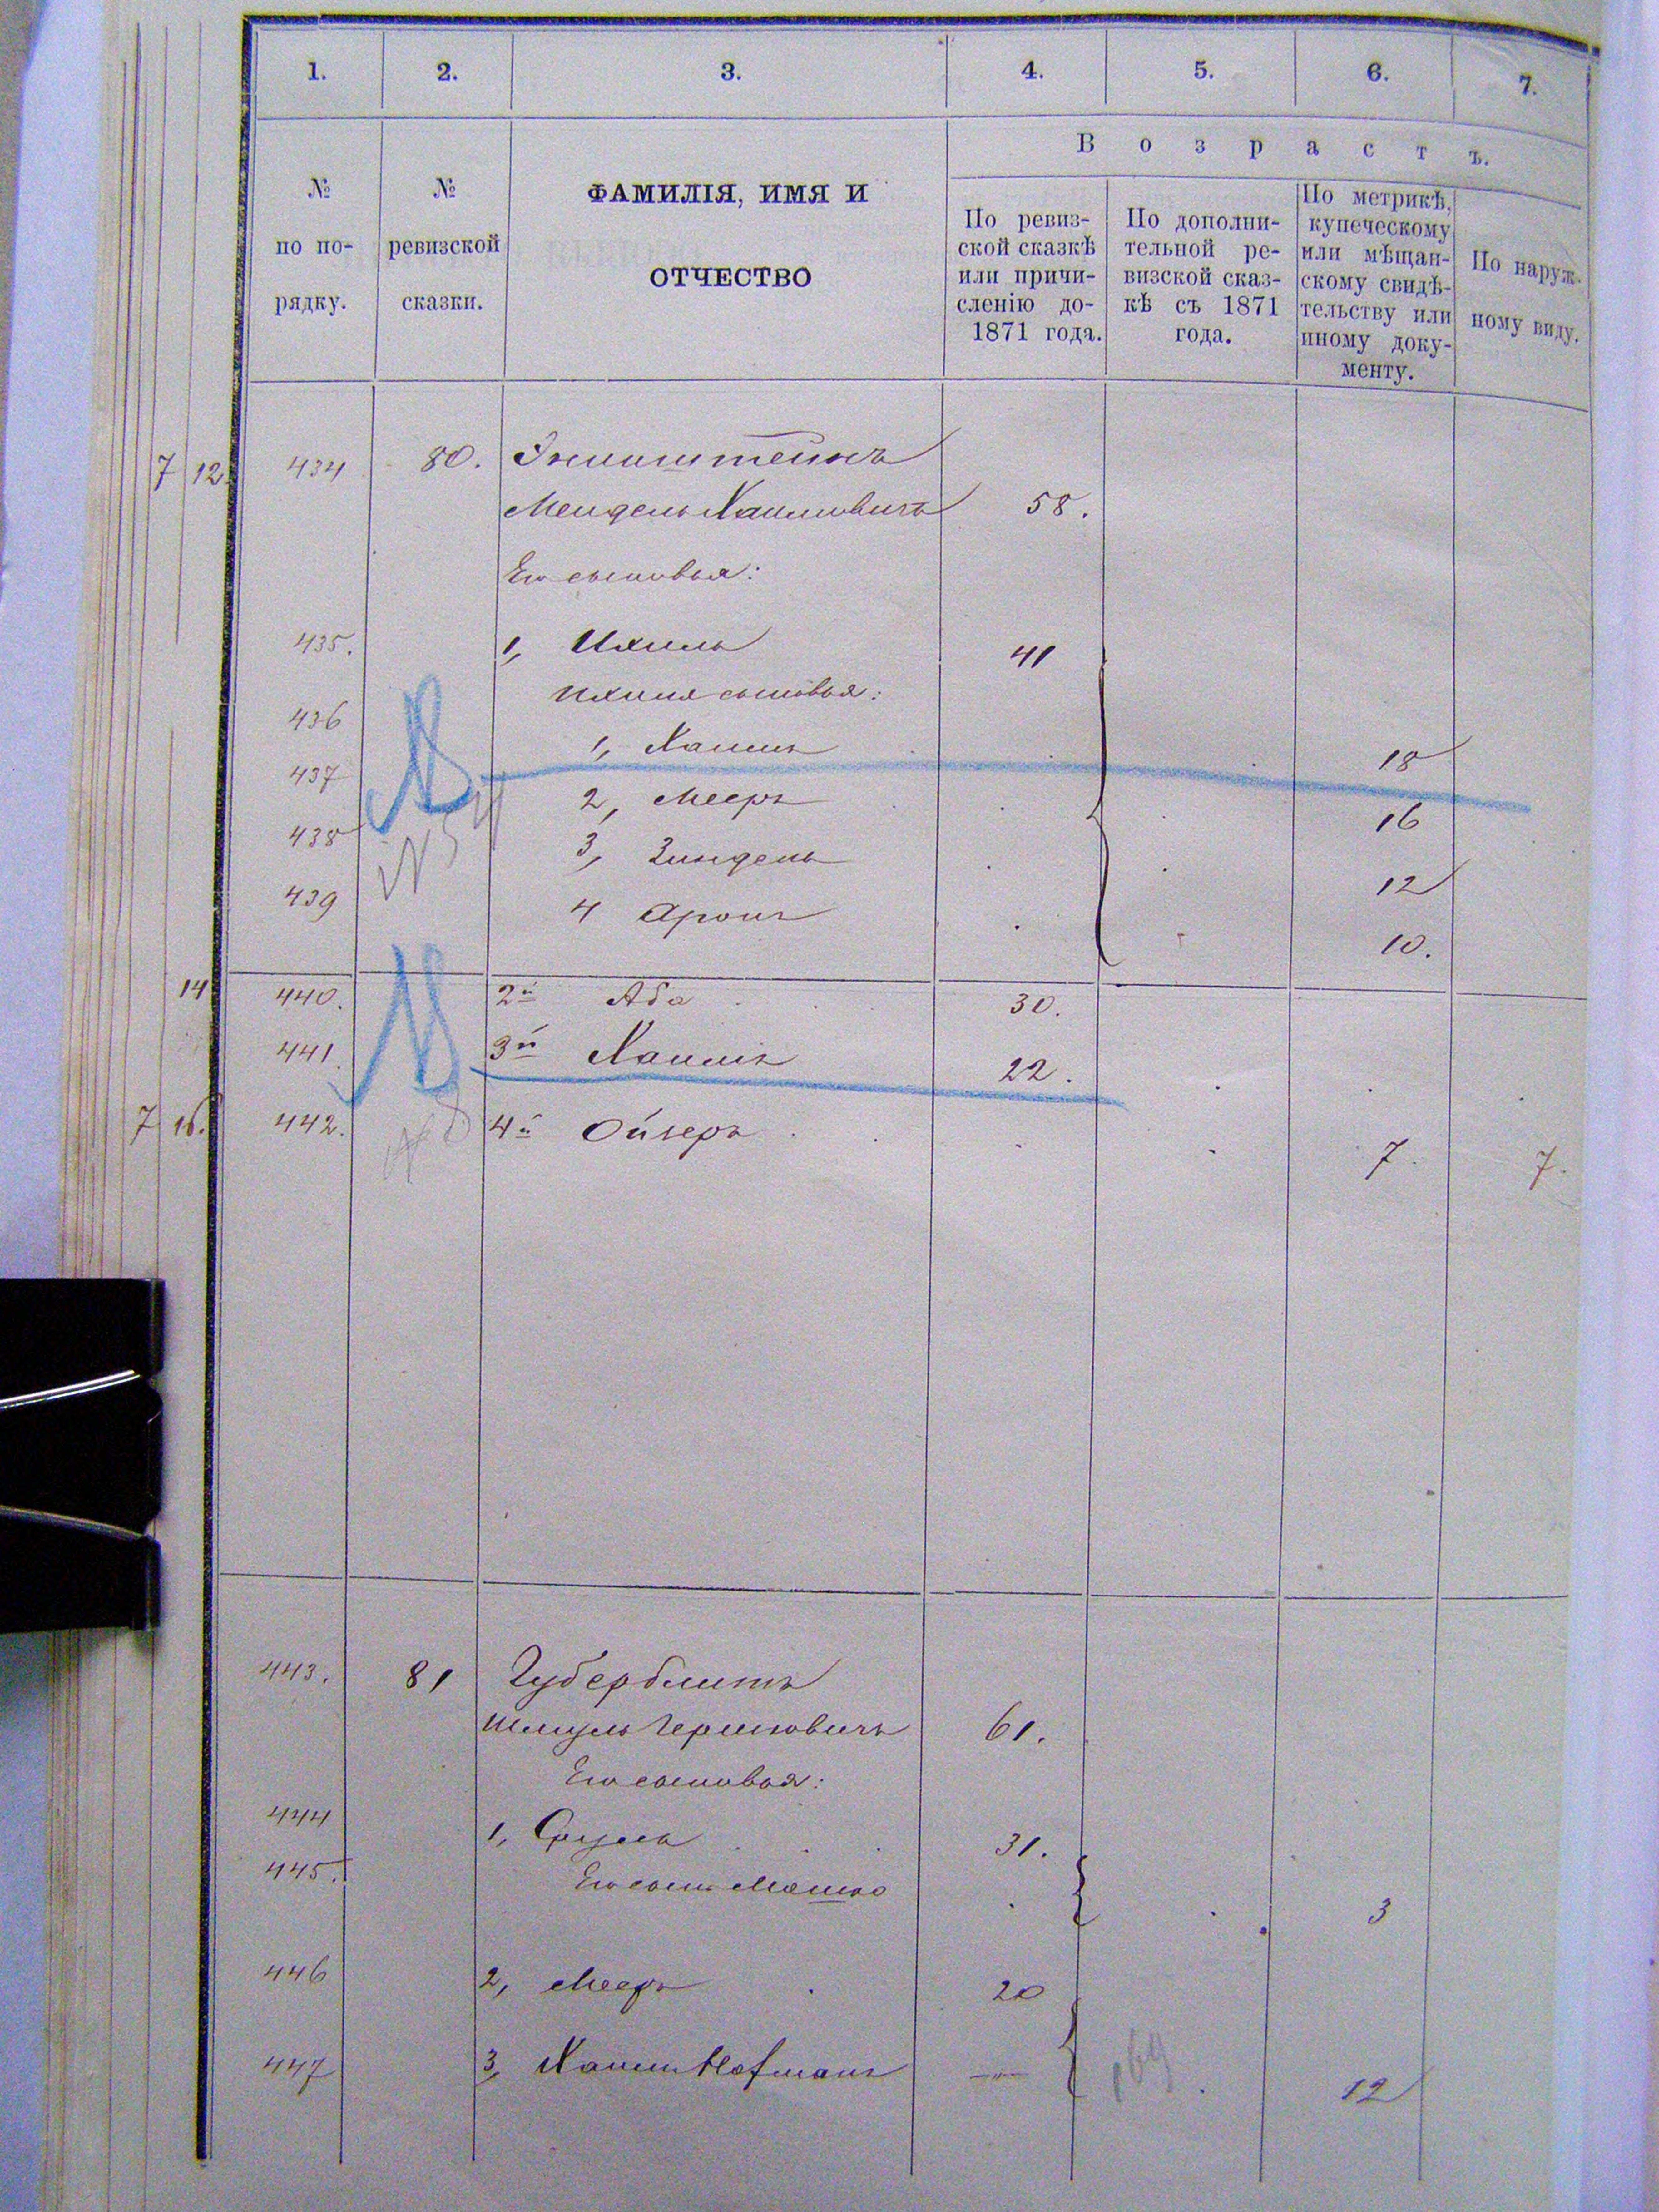 1. 2. 3. 4. 5. 6. 7.
В о з р а с т ъ.
№ по по- рядку.
№ ревизской сказки.
ФАМИЛІЯ, ИМЯ И
ОТЧЕСТВО
По ревиз-
ской сказкѣ
или причи-
сленію до-
1871 года.
По дополни-
тельной ре-
визской сказ-
кѣ съ 1871
года.
По метрикѣ,
купеческому
или мѣщан-
скому свидѣ-
тельству или
иному доку-
менту.
По наруж-
ному виду.
7 12 434 80.
Мендель Хаимовичъ 58.
Его сыновья:
435. 1, Ихиль 41
Ихиля сыновья:
436 1, Хаимъ 18
437 2, Мееръ 16
438 3, Зиндель 12
439 4 Аронъ 10.
14 440. 2й Аба 30.
441. 3й Хаимъ 22.
7 442. 4й Ойзеръ 7. 7.
443. 81 Губерблитъ
Шмуль Гершковичъ 61.
Его сыновья:
444 1, Сруль 31.
445. Его сынъ Мошко 3
446 2, Мееръ 20
447 3, Хаимъ Нафманъ 169 12